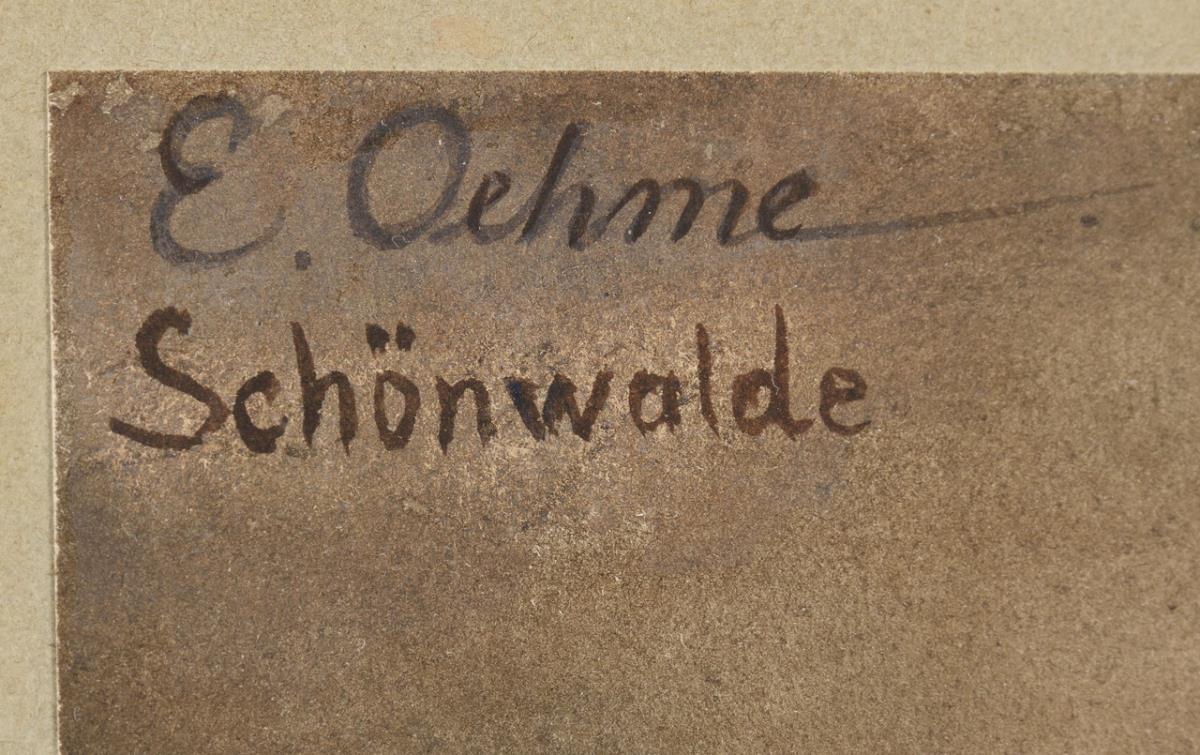 E. Oehme
Schönwalde